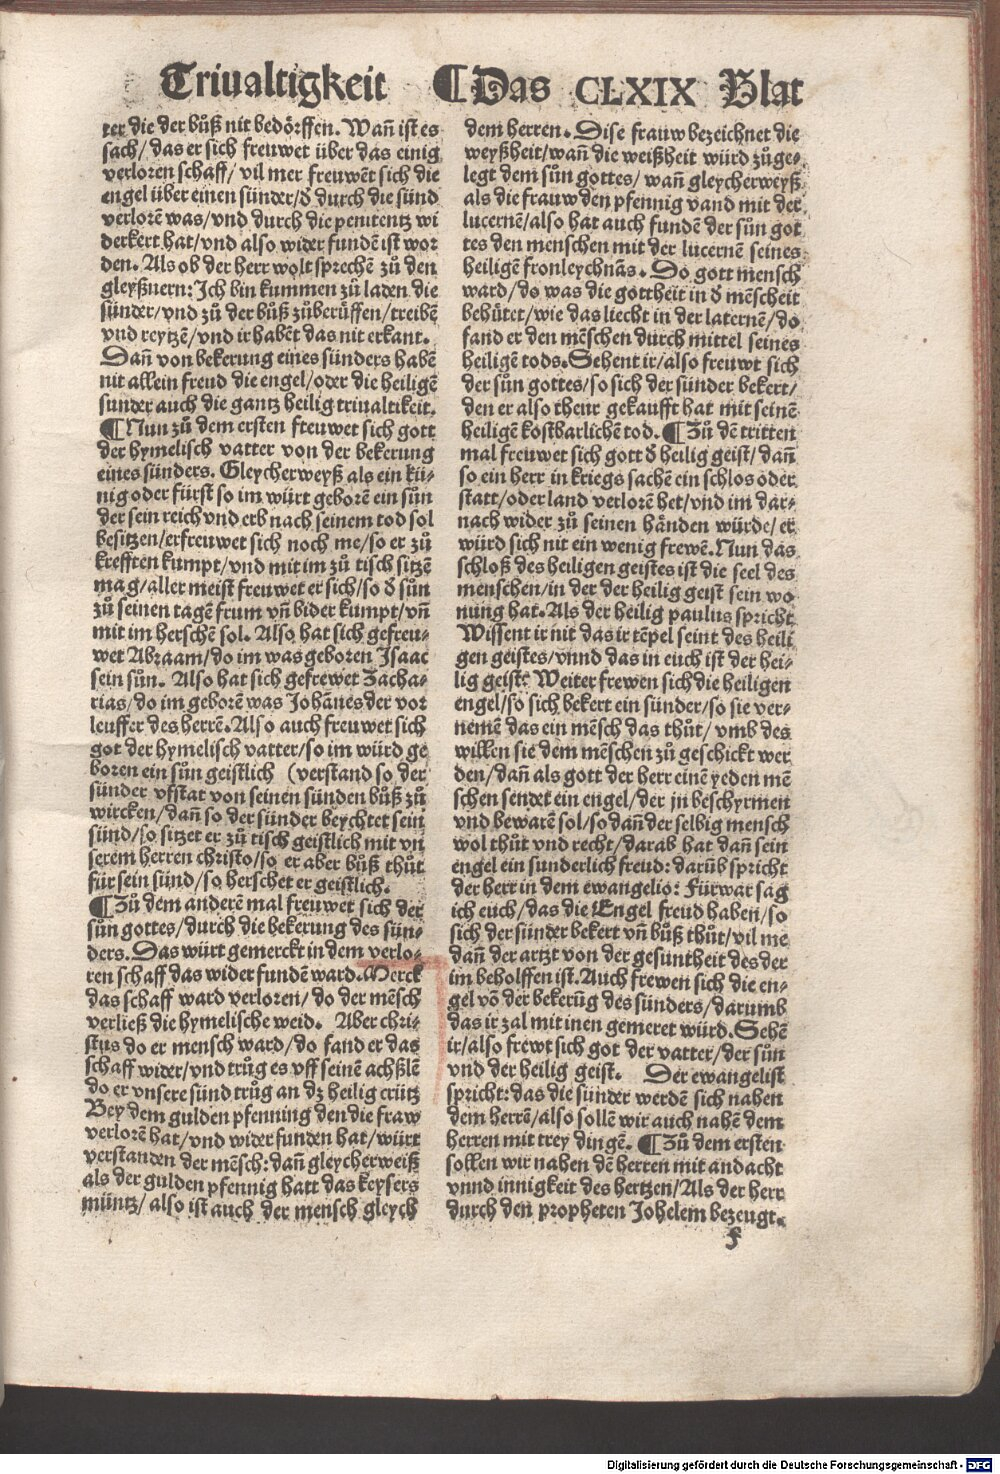 Triualtigkeit ¶Das CLXIX Blat
ter die der bůß nit bedörffen. Wañ ist es
sach/das er sich freuwet über das einig
verloren schaff/ vil mer freuwẽt sich die
engel über einen sünder/ď durch die sünd
verlorẽ was/vnd durch die penitentz wi
derkert hat/vnd also wider fundẽ ist wor
den. Als ob der herr wolt sprechẽ zů den
gleyßnern: Ich bin kummen zů laden die
sünder/vnd zů der bůß zůberüffen/treibẽ
vnd reytzẽ/vnd ir habẽt das nit erkant.
Dañ von bekerung eines sünders habẽ
nit allein freud die engel/oder die heiligẽ
sunder auch die gantz heilig triualtikeit.
¶Nun zů dem ersten freuwet sich gott
der hymelisch vatter von der bekerung
eines sünders. Gleycherweyß als ein kü-
nig oder fürst so im würt geborẽ ein sůn
der sein reich vnd erb nach seinem tod sol
besitzen/erfreuwet sich noch me/so er zů
krefften kumpt/vnd mit im zů tisch sitzẽ
mag/aller meist freuwet er sich/so ď sůn
zů seinen tagẽ frum vñ bider kumpt/vñ
mit im herschẽ sol. Also hat sich gefreu-
wet Abraam/do im was geboren Isaac
sein sůn. Also hat sich gefrewet Zacha-
rias/do im geborẽ was Johãnes der vor
leuffer des herrẽ. Also auch freuwet sich
got der hymelisch vatter/so im würd ge
boren ein sůn geistlich (verstand so der
sünder vfstat von seinen sünden bůß zů
wircken/dañ so der sünder beychtet sein
sünd/so sitzet er zů tisch geistlich mit vn
serem herren christo/so er aber bůß thůt
für sein sünd/so herschet er geistlich.
¶Zů dem anderẽ mal freuwet sich der
sůn gottes/durch die bekerung des sün-
ders. Das würt gemerckt in dem verlo-
ren schaff das wider fundẽ ward. Merck
das schaff ward verloren/ do der mẽsch
verließ die hymelische weid. Aber chri-
stus do er mensch ward/do fand er das
schaff wider/vnd trůg es vff seinẽ achßlẽ
do er vnsere sünd trůg an dz heilig crütz
Bey dem gulden pfenning den die fraw
verlorẽ hat/vnd wider funden hat/würt
verstanden der mẽsch: dañ gleycherweiß
als der gulden pfennig hatt das keysers
müntz/ also ist auch der mensch gleych
dem herren. Dise frauw bezeichnet die
weyßheit/wañ die weißheit würd zůge-
legt dem sůn gottes/ wañ gleycherweyß
als die frauw den pfennig vand mit der
lucernẽ/also hat auch fundẽ der sůn got
tes den menschen mit der lucernẽ seines
heiligẽ fronleychnãs. Do gott mensch
ward/do was die gottheit in ď mẽscheit
behůtet/wie das liecht in der laternẽ/do
fand er den mẽschen durch mittel seines
heiligẽ tods. Sehent ir/also freuwt sich
der sůn gottes/so sich der sünder bekert/
den er also theur gekaufft hat mit seinẽ
heiligẽ kostbarlichẽ tod. ¶Zů dẽ tritten
mal freuwet sich gott ď heilig geist/ dañ
so ein herr in kriegs sachẽ ein schlos oder
statt/oder land verlorẽ het/vnd im dar-
nach wider zů seinen hånden würde/ er
würd sich nit ein wenig frewẽ. Nun das
schloß des heiligen geistes ist die seel des
menschen/in der der heilig geist sein wo
nung hat. Als der heilig paulus spricht
Wissent ir nit das ir tẽpel seint des heili
gen geistes/vnnd das in euch ist der hei-
lig geist: Weiter frewen sich die heiligen
engel/so sich bekert ein sünder/so sie ver-
nemẽ das ein mẽsch das thůt/ vmb des
willen sie dem mẽschen zů geschickt wer
den/dañ als gott der herr einẽ yeden mẽ
schen sendet ein engel/der jn beschyrmen
vnd bewarẽ sol/so dañ der selbig mensch
wol thůt vnd recht/darab hat dañ sein
engel ein sunderlich freud: darũb spricht
der herr in dem ewangelio: Fürwar sag
ich euch/das die Engel freud haben/so
sich der sünder bekert vñ bůß thůt/vil me
dañ der artzt von der gesuntheit des der
im beholffen ist. Auch frewen sich die en-
gel võ der bekerũg des sünders/darumb
das ir zal mit inen gemeret würd. Sehẽ
ir/also frewt sich got der vatter/der sůn
vnd der heilig geist. Der ewangelist
spricht: das die sünder werdẽ sich nahen
dem herrẽ/also sollẽ wir auch nahẽ dem
herren mit trey dingẽ. ¶Zů dem ersten
sollen wir nahen dẽ herren mit andacht
vnnd innigkeit des hertzen/Als der herr
durch den propheten Johelem bezeugt.
f
Digitalisierung gefördert durch die Deutsche Forschungsgemeinschaft - DFG